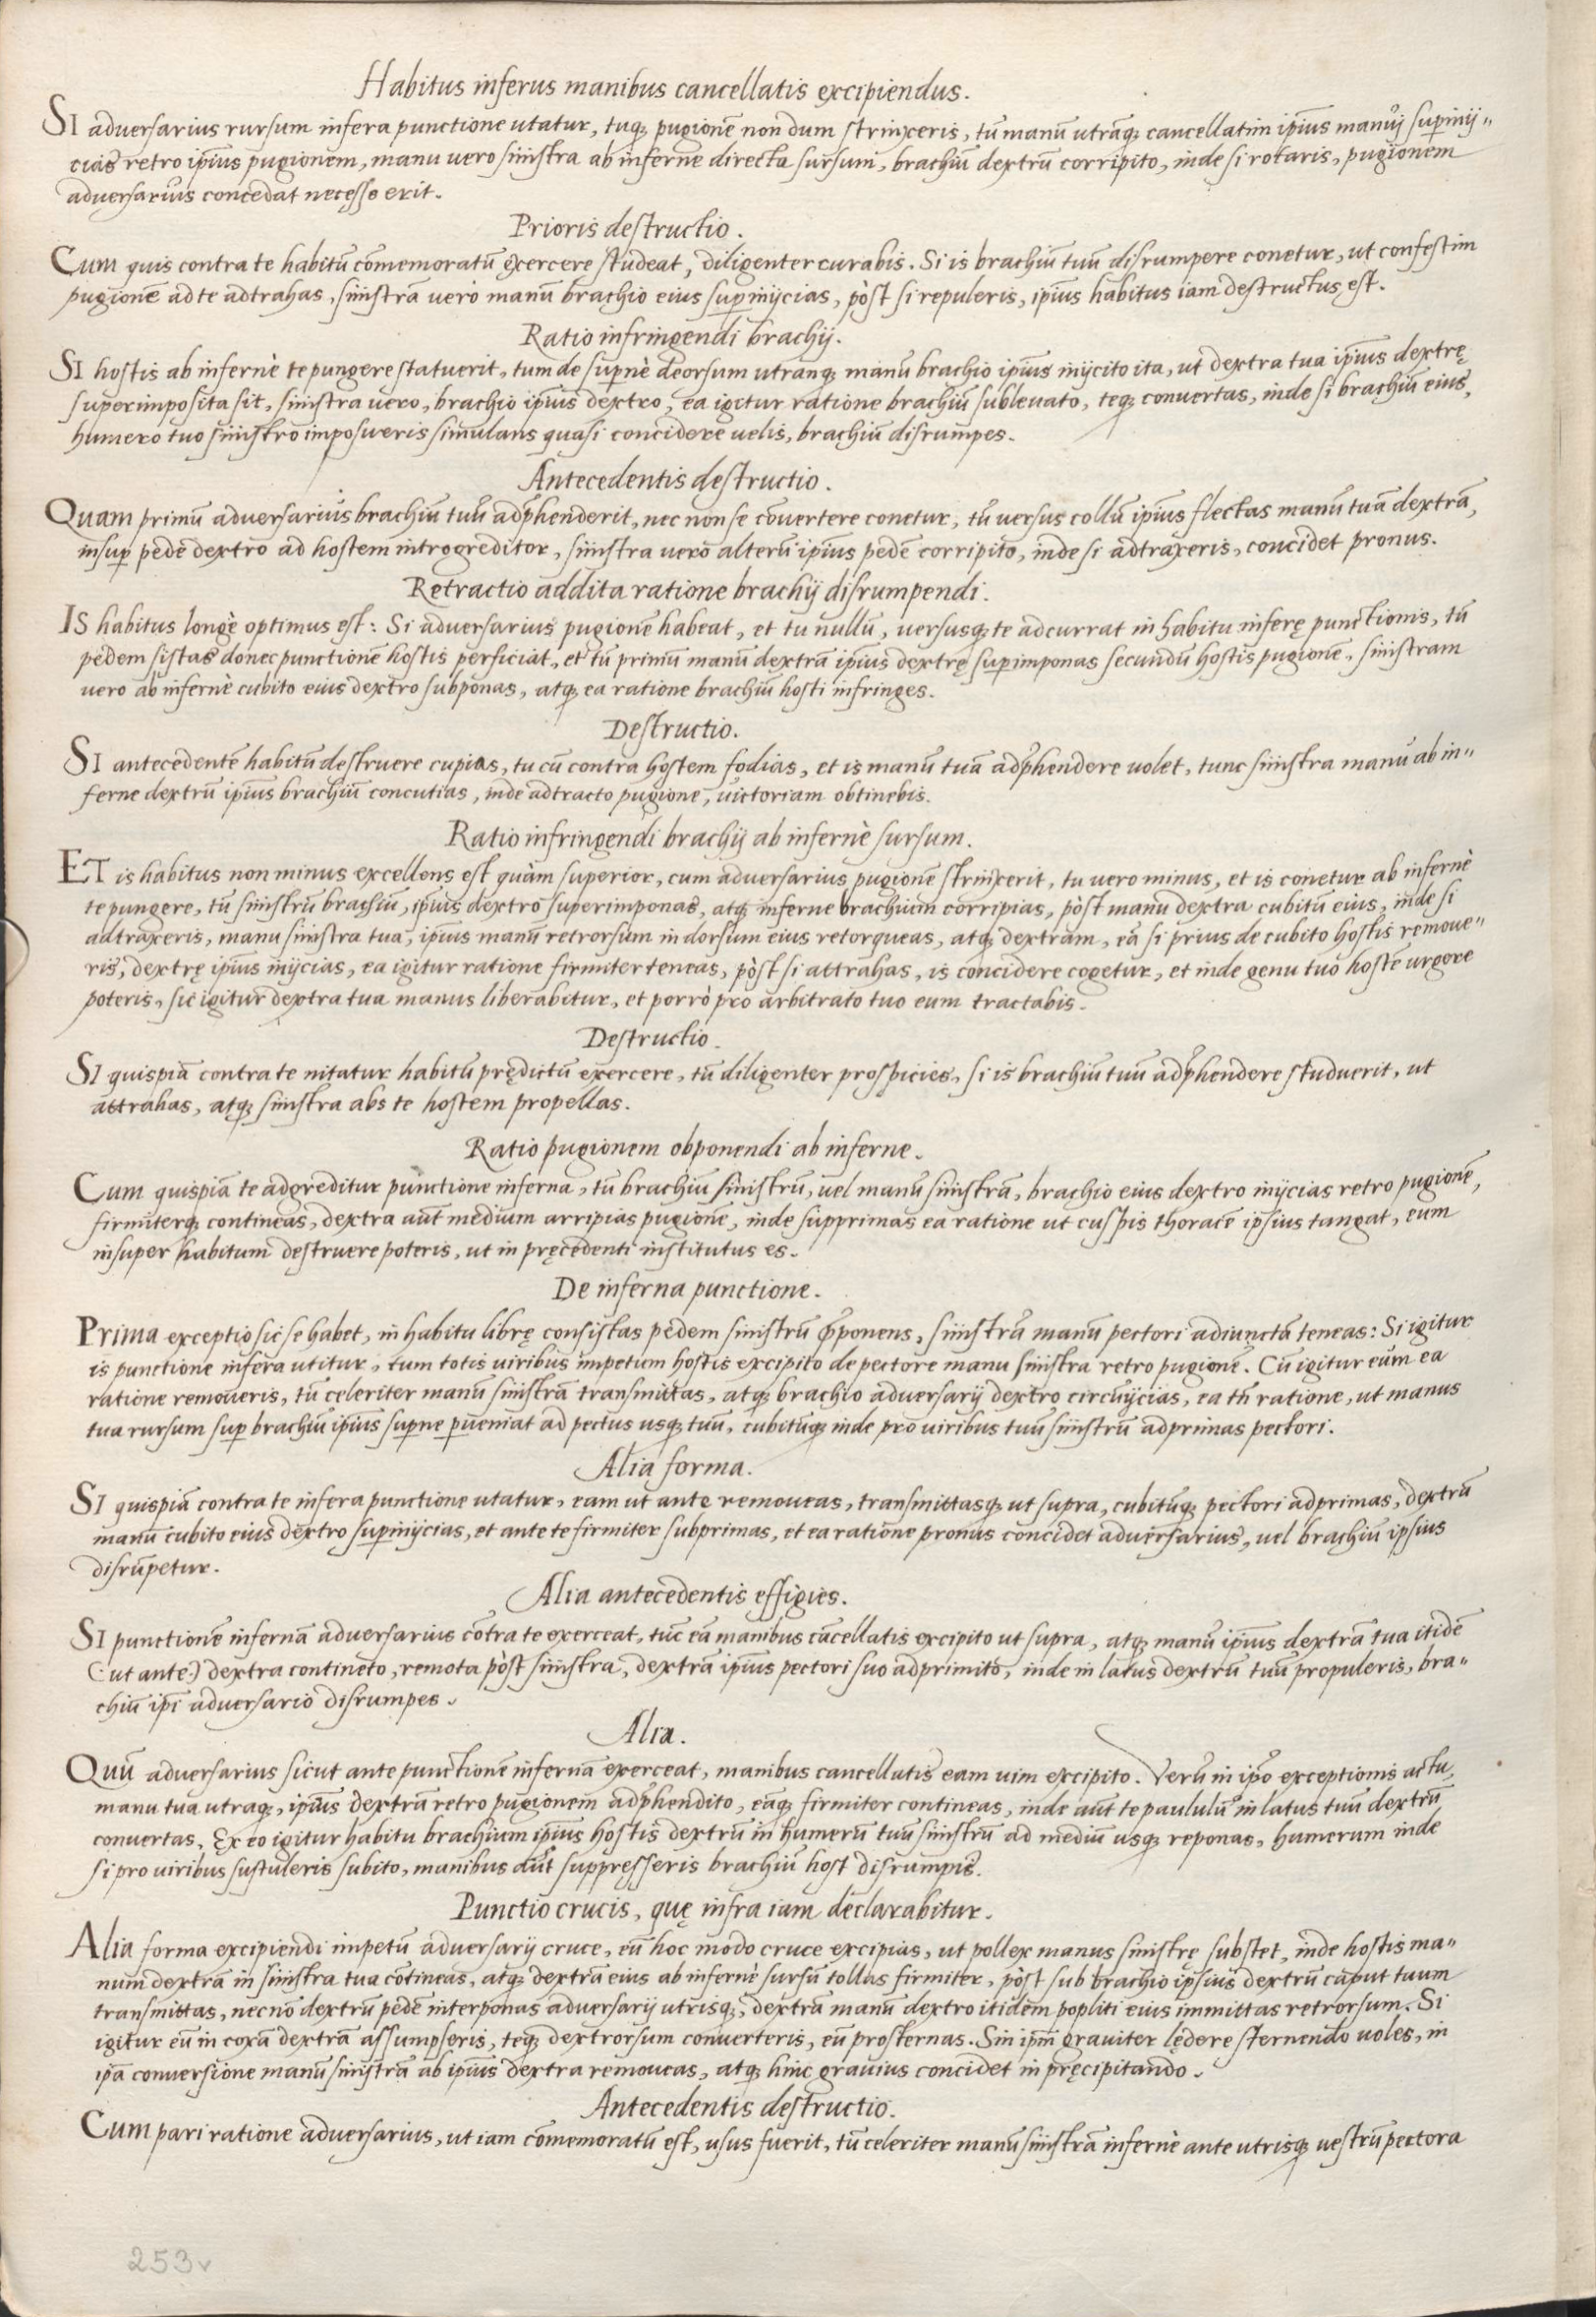 Habitus inferus manibus cancellatis excipiendus.
SI adversarius rursum infera punctione utatur, tuq̨ pugionē non dum strinxeris, tū manū utrāq̨ cancellatim ip̄ius manuj supinij„
cias retro ip̄ius pugionem, manu vero sinistra ab inferne directa sursum, brachiū dextrū corripito, inde si rotaris, pugionem
adversarius concedat necęsse erit.
Prioris destructio.
Cum quis contra te habitū cōmemoratū exercere studeat, diligenter curabis. Si is brachiū tuū disrumpere conetur, ut confestim
pugionē ad te adtrahas, sinistrā vero manū brachio eius supinijcias, pòst si repuleris, ip̄ius habitus iam destructus est.
Ratio infringendi brachij.
SI hostis ab infernè te pungere statuerit, tum de supnè deorsum utranq̨ manū brachio ip̄ius inijcito ita, ut dextra tua ip̄ius dextrę
superimposita sit, sinistra vero, brachio ip̄ius dextro, ea igitur ratione brachiū sublevato, teq̨ convertas, inde si brachiū eius,
humero tuo sinistro imposueris simulans quasi concidere uelis, brachiū disrumpes.
Antecedentis destructio.
Quam primū adversarius brachiū tuū adp̄henderit, nec non se cōvertere conetur, tū versus collū ip̄ius flectas manū tuā dextrā,
insup pedē dextro ad hostem introgreditor, sinistra vero alterū ip̄ius pedē corripito, inde si adtraxeris, concidet pronus.
Retractio addita ratione brachij disrumpendi.
IS habitus longè optimus est: Si adversarius pugionē habeat, et tu nullū, versusq̨ te adcurrat in habitu inferę punctionis, tū
pedem sistas donec punctionē hostis perficiat, et tū primū manū dextrā ip̄ius dextrę supimponas secundū hostis pugionē, sinistram
vero ab infernè cubito eius dextro subponas, atq̨ ea ratione brachiū hosti infringes.
Destructio.
SI antecedentē habitū destruere cupias, tu cū contra hostem fodias, et is manū tuā adp̄hendere volet, tunc sinistra manu ab in„
ferne dextrū ip̄ius brachiū concutias, inde adtracto pugione, victoriam obtinebis.
Ratio infringendi brachij ab infernè sursum.
ET is habitus non minus excellens est quàm superior, cum adversarius pugionē strinxerit, tu vero minus, et is conetur ab infernè
te pungere, tū sinistrū brachiū, ip̄ius dextro superimponas, atq̨ inferne brachium corripias, pòst manu dextra cubitū eius, inde si
adtraxeris, manu sinistra tua, ip̄ius manū retrorsum in dorsum eius retorqueas, atq̨ dextram, eā si prius de cubito hostis remove„
ris, dextrę ip̄ius inijcias, ea igitur ratione firmiter teneas, pòst si attrahas, is concidere cogetur, et inde genu tuo hostē urgere
poteris, sic igitur dextra tua manus liberabitur, et porrò pro arbitrato tuo eum tractabis.
Destructio.
SI quispiā contra te nitatur habitū prędictū exercere, tū diligenter prospicies, si is brachiū tuū adp̄hendere studuerit, ut
attrahas, atq̨ sinistra abs te hostem propellas.
Ratio pugionem obponendi ab inferne.
Cum quispiā te adgreditur punctione inferna, tū brachiū sinistrū, vel manū sinistrā, brachio eius dextro inijcias retro pugionē,
firmiterq̨ contineas, dextra aut̄ medium arripias pugionē, inde supprimas ea ratione ut cuspis thoracē ipsius tangat, eum
insuper habitum destruere poteris, ut in pręcedenti institutus es.
De inferna punctione.
Prima exceptio sic se habet, in habitu librę consistas pedem sinistrū p̄ponens, sinistrā manū pectori adiunctā teneas: Si igitur
is punctione infera utitur, tum totis viribus impetum hostis excipito de pectore manu sinistra retro pugionē. Cū igitur eum ea
ratione removeris, tū celeriter manū sinistrā transmittas, atq̨ brachio adversarij dextro circūijcias, ea tn̄ ratione, ut manus
tua rursum sup brachiū ip̄ius supne pveniat ad pectus usq̨ tuū, cubitūq̨ inde pro viribus tuū sinistrū adprimas pectori.
Alia forma.
SI quispiā contra te infera punctione utatur, eam ut ante removeas, transmittasq̨ ut supra, cubitūq̨ pectori adprimas, dextrū
manū cubito eius dextro supinijcias, et ante te firmiter subprimas, et ea ratione pronus concidet adversarius, vel brachiū ipsius
disrūpetur.
Alia antecedentis effigies.
SI punctionē infernā adversarius cōtra te exerceat, tūc eā manibus cācellatis excipito ut supra, atq̨ manū ip̄ius dextrā tua itidē
(: ut ante:) dextra contineto, remota pòst sinistra, dextrā ip̄ius pectori suo adprimito, inde in latus dextrū tuū propuleris, bra„
chiū ip̄i adversario disrumpes.
Alia.
Quū adversarius sicut ante punctionē infernā exerceat, manibus cancellatis eam vim excipito. Verū in ip̄o exceptionis actu,
manu tua utraq̨, ip̄ius dextrā retro pugionem adp̄hendito, eāq̨ firmiter contineas, inde aut̄ te paululū in latus tuū dextrū
convertas. Ex eo igitur habitu brachium ip̄ius hostis dextrū in humerū tuū sinistrū ad mediū usq̨ reponas, humerum inde
si pro viribus sustuleris subito, manibus aut̄ suppresseris brachiū host disrumpis.
Punctio crucis, quę infra iam declarabitur.
Alia forma excipiendi impetū adversarij cruce, eū hoc modo cruce excipias, ut pollex manus sinistrę substet, inde hostis ma„
num dextrā in sinistra tua cōtineas, atq̨ dextrā eius ab infernè sursū tollas firmiter, pòst sub brachio ipsius dextrū caput tuum
transmittas, necnō dextrū pedē interponas adversarij utrisq̨, dextrā manū dextro itidem popliti eius immittas retrorsum. Si
igitur eū in coxā dextrā assumpseris, teq̨ dextrorsum converteris, eū prosternas. Sin ip̄m graviter lędere sternendo voles, in
ip̄a conversione manū sinistrā ab ip̄ius dextra removeas, atq̨ hinc gravius concidet in pręcipitando.
Antecedentis destructio.
Cum pari ratione adversarius, ut iam cōmemoratū est, usus fuerit, tū celeriter manū sinistrā infernè ante utrisq̨ vestrū pectora
253v